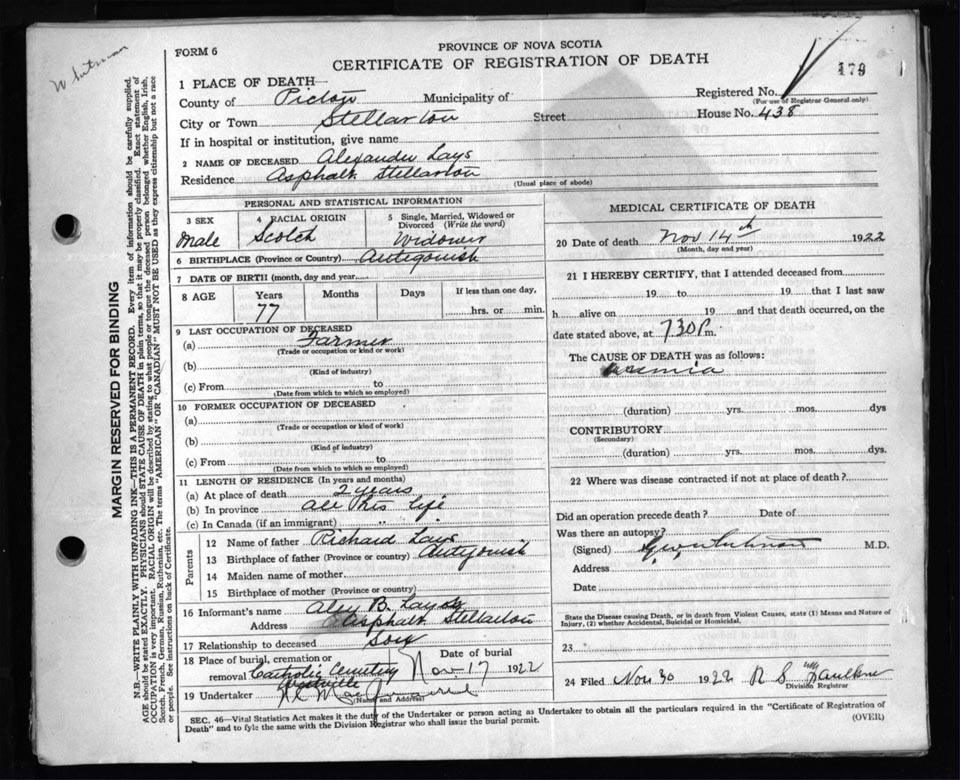 Whitman
FORM 6
PROVINCE OF NOVA SCOTIA
CERTIFICATE OF REGISTRATION OF DEATH
179
1 PLACE OF DEATH
Registered No.
(For use of Registrar General only)
County of Pictou Municipality of
City or Town Stellarton Street House No. 438
If in hospital or institution, give name
2 NAME OF DECEASED Alexander Lays
Residence Asphalt Stellarton
(Usual place of abode)
PERSONAL AND STATISTICAL INFORMATION
3 SEX
Male
4 RACIAL ORIGIN
Scotch
5 Single, Married, Widowed or
Divorced (Write the word)
Widower
6 BIRTHPLACE (Province or Country) Antigonish
7 DATE OF BIRTH (month, day and year
8 AGE Years Months Days If less than one day,
77 hrs. or min.
9 LAST OCCUPATION OF DECEASED
(a) Farmer
(Trade or occupation or kind of work)
(b)
(Kind of industry)
(c) From to
(Date from which to which so employed)
10 FORMER OCCUPATION OF DECEASED
(a)
(Trade or occupation or kind of work)
(b)
(Kind of industry)
(c) From to
(Date from which to which so employed)
11 LENGTH OF RESIDENCE (In years and months)
(a) At place of death 2 years
(b) In province all his life
(c) In Canada (if an immigrant) " "
Parents
12 Name of father Richard Lays
13 Birthplace of father (Province or country) Antigonish
14 Maiden name of mother
15 Birthplace of mother (Province or Country)
16 Informant's name Alex B. Lays
Address Asphalt Stellarton
17 Relationship to deceased Son
18 Place of burial, cremation or
removal Catholic Cemetery
Westville
Date of burial
Nov 17 1922
19 Undertaker
(Name and Address)
MEDICAL CERTIFICATE OF DEATH
20 Date of death Nov 14th 1922
(Month, day and year)
21 I HEREBY CERTIFY, that I attended deceased from
19 to 19 that I last saw
h alive on 19 and that death occurred, on the
date stated above, at 730 P m.
The CAUSE OF DEATH was as follows:
(duration) yrs. mos. dys
CONTRIBUTORY
(Secondary)
(duration) yrs. mos. dys.
22 Where was disease contracted if not at place of death?
Did an operation precede death? Date of
Was there an autopsy?
(Signed) Whitman M.D.
Address
Date
State the Disease causing Death, or in death from Violent Causes, state (1) Means and Nature of
Injury, (2) whether Accidental, Suicidal or Homicidal.
23
24 Filed Nov 30 1922 R S Faulkner
Division Registrar
SEC. 46—Vital Statistics Act makes it the duty of the Undertaker or person acting as Undertaker to obtain all the particulars required in the "Certificate of Registration of
Death" and to fyle the same with the Division Registrar who shall issue the burial permit.
(OVER)
MARGIN RESERVED FOR BINDING
N.B.—WRITE PLAINLY WITH UNFADING INK—THIS IS A PERMANENT RECORD. Every item of information should be carefully supplied.
AGE should be stated EXACTLY. PHYSICIANS should STATE CAUSE OF DEATH in plain terms, so that it may be properly classified. Exact statement of
OCCUPATION is very important. RACIAL ORIGIN will be described by stating to what people or tongue the deceased person belonged whether English, Irish,
Scotch, French, German, Russian, Ruthenian, etc. The terms "AMERICAN" OR "CANADIAN" MUST NOT BE USED as they express citizenship but not a race
or people. See instructions on back of Certificate.